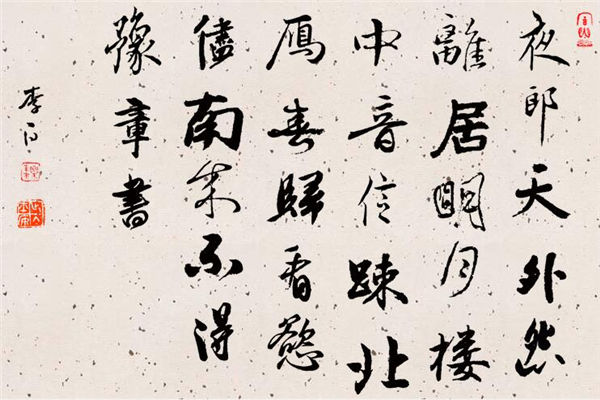 夜郎天外怨
離居明月楼
中音信踈北
鴈春歸看慾
儘南来不得
豫章書
李白